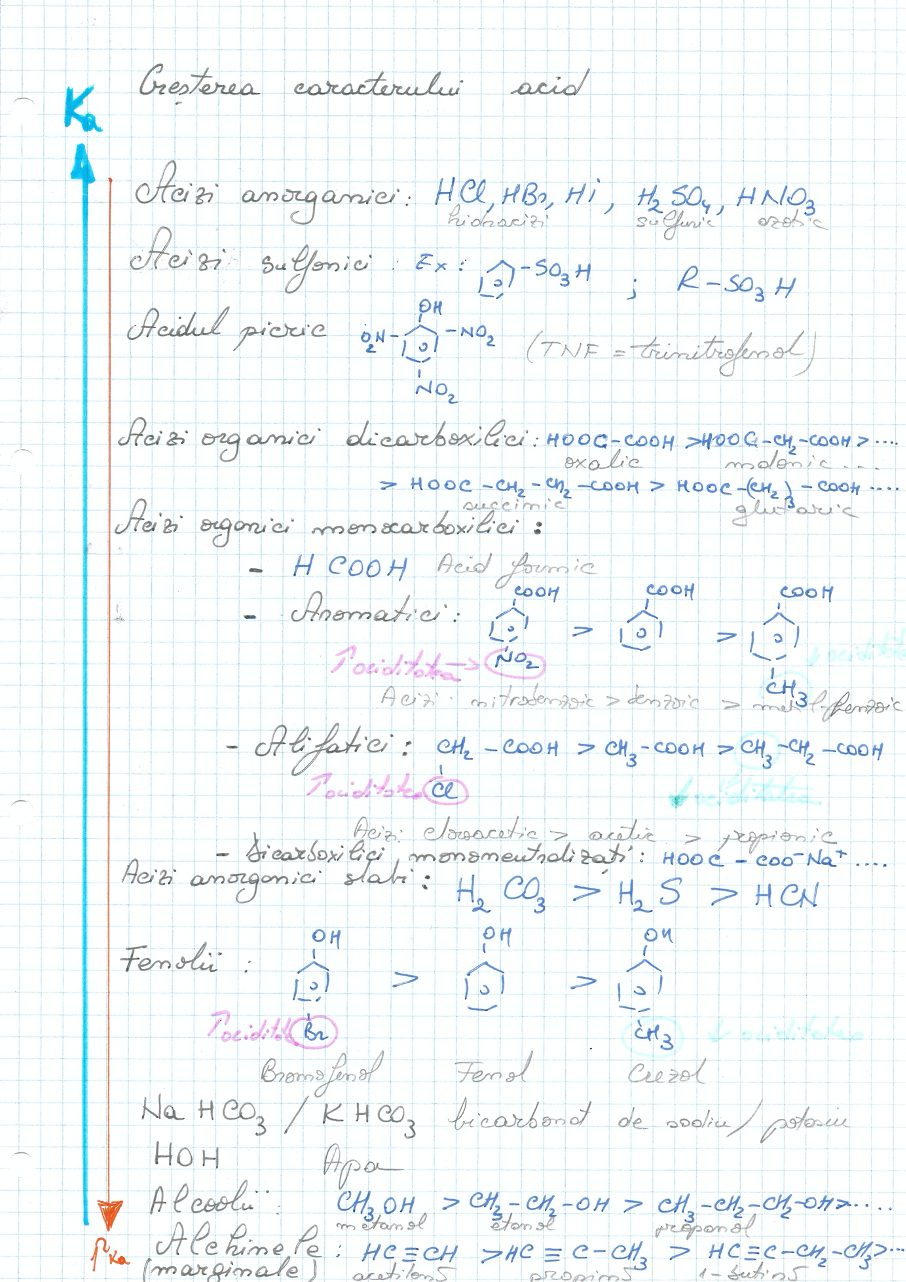 Creșterea caracterului acid
Ka
Acizi anorganici: HCl, HBr, Hi, H2SO4, HNO3
hidracizi sulfuric azotic
Acizi sulfonici Ex: -SO3H ; R-SO3H
OH
Acidul picric O2N- -NO2 (TNF = trinitrofenol)
NO2
Acizi organici dicarboxilici: HOOC-COOH > HOOC-CH2-COOH > ....
oxalic malonic ....
> HOOC-CH2-CH2-COOH > HOOC-(CH2)3-COOH ....
succinic glutaric
Acizi organici monocarboxilici:
- HCOOH Acid formic
COOH COOH COOH
- Aromatici: > >
↑aciditatea → NO2 ↓aciditatea
CH3
Acizi: nitrobenzoic > benzoic > metil-benzoic
- Alifatici: CH2-COOH > CH3-COOH > CH3-CH2-COOH
↑aciditatea Cl ↓aciditatea
Acizi: cloroacetic > acetic > propionic
- Dicarboxilici mononeutralizați: HOOC-COO⁻Na⁺ ....
Acizi anorganici slabi: H2CO3 > H2S > HCN
OH OH OH
Fenolii: > >
↑acidit Br CH3 ↓aciditatea
Bromofenol Fenol Crezol
NaHCO3 / KHCO3 bicarbonat de sodiu/potasiu
HOH Apa
Alcoolii: CH3OH > CH3-CH2-OH > CH3-CH2-CH2-OH > ....
metanol etanol propanol
pKa
Alchinele: HC≡CH > HC≡C-CH3 > HC≡C-CH2-CH3 > ...
(marginale) acetilenă propină 1-butină